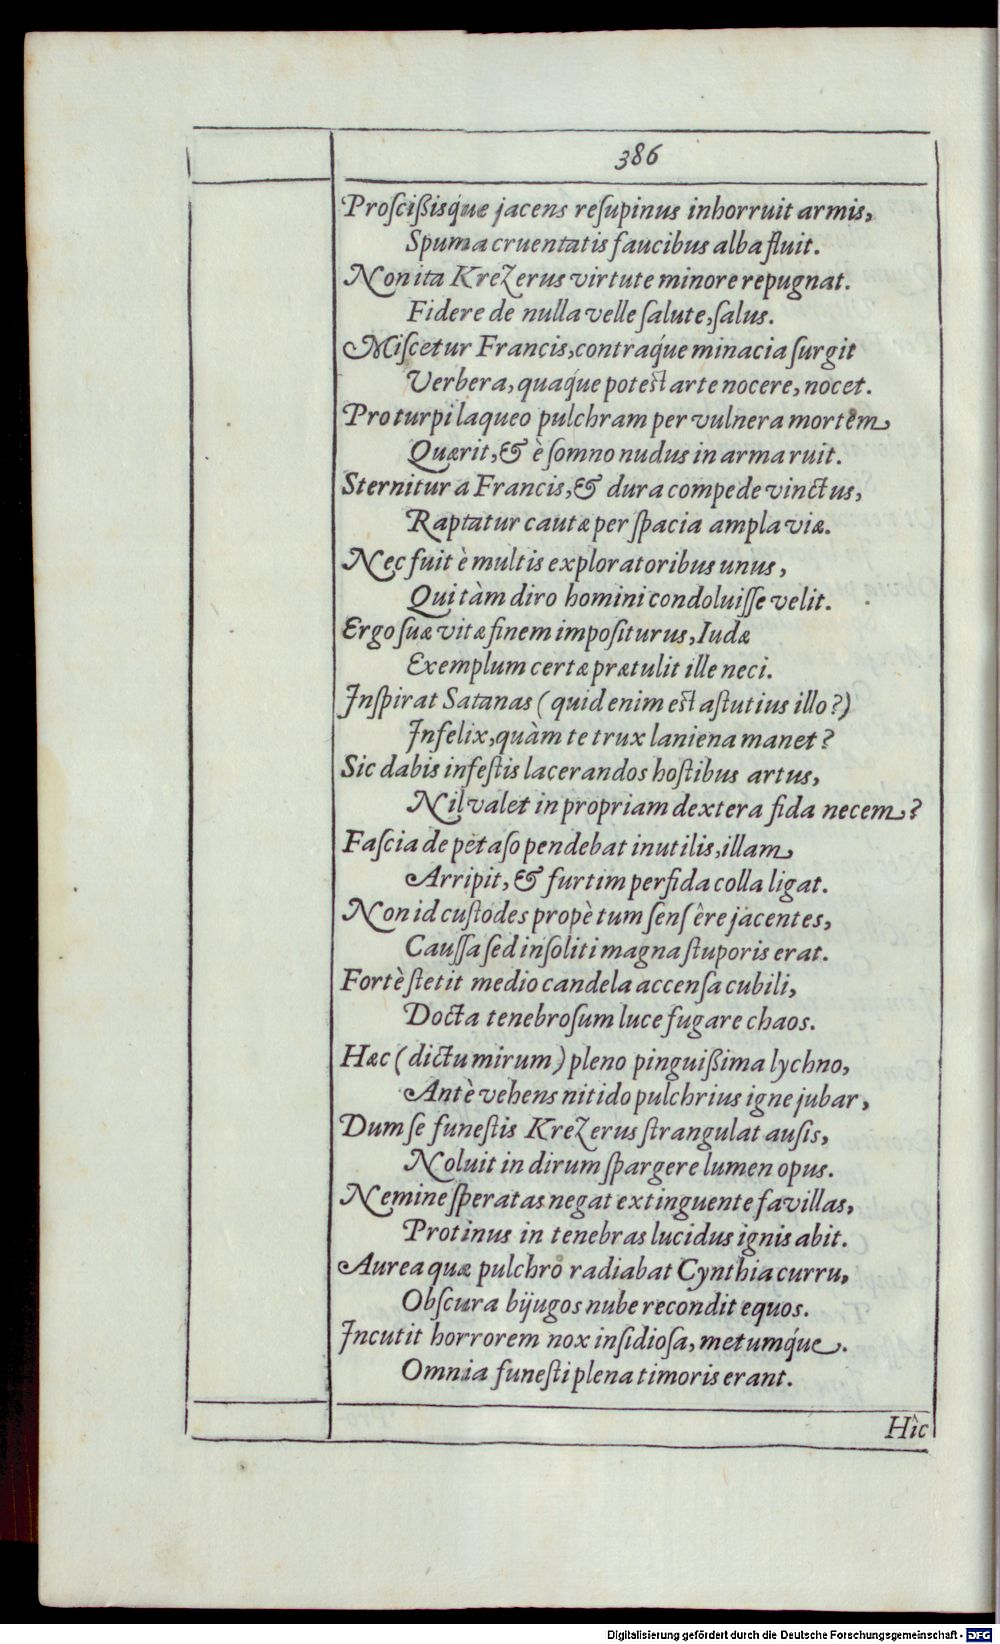 386
Proſcißisq́ue jacens reſupinus inhorruit armis,
Spuma cruentatis faucibus alba fluit.
Non ita Krezerus virtute minore repugnat.
Fidere de nulla velle ſalute, ſalus.
Miſcetur Francis, contraq́ue minacia ſurgit
Verbera, quaq́ue poteſt arte nocere, nocet.
Pro turpi laqueo pulchram per vulnera mortem
Quærit, & è ſomno nudus in arma ruit.
Sternitur a Francis, & dura compede vinctus,
Raptatur cautæ per ſpacia ampla viæ.
Nec fuit è multis exploratoribus unus,
Qui tàm diro homini condoluiſſe velit.
Ergo ſuæ vitæ finem impoſiturus, Iudæ
Exemplum certæ prætulit ille neci.
Inſpirat Satanas (quid enim eſt aſtutius illo?)
Infelix, quàm te trux laniena manet?
Sic dabis infeſtis lacerandos hoſtibus artus,
Nil valet in propriam dextera fida necem?
Faſcia de petaſo pendebat inutilis, illam
Arripit, & furtim perfida colla ligat.
Non id cuſtodes propè tum ſensêre jacentes,
Cauſſa ſed inſoliti magna ſtuporis erat.
Fortè ſtetit medio candela accenſa cubili,
Docta tenebroſum luce fugare chaos.
Hæc (dictu mirum) pleno pinguißima lychno,
Antè vehens nitido pulchrius igne jubar,
Dum ſe funeſtis Krezerus ſtrangulat auſis,
Noluit in dirum ſpargere lumen opus.
Nemine ſperatas negat extinguente favillas,
Protinus in tenebras lucidus ignis abit.
Aurea quæ pulchro radiabat Cynthia curru,
Obſcura bijugos nube recondit equos.
Incutit horrorem nox inſidioſa, metumq́ue.
Omnia funeſti plena timoris erant.
Hîc
Digitalisierung gefördert durch die Deutsche Forschungsgemeinschaft - DFG